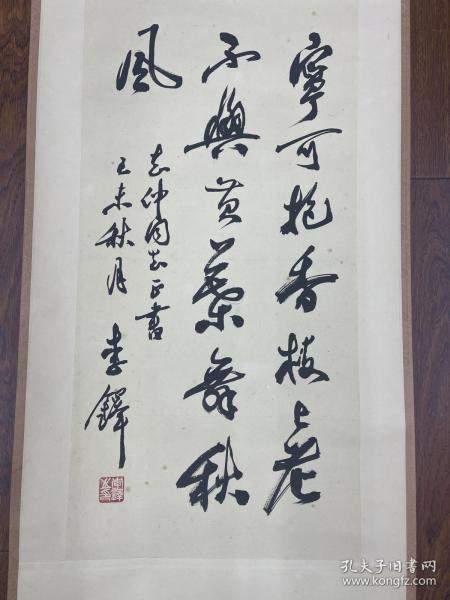 寧可抱香枝上老
不與黃葉舞秋
風
志仲同志正書
己未秋月 李鐸
孔夫子旧书网
www.kongfz.com